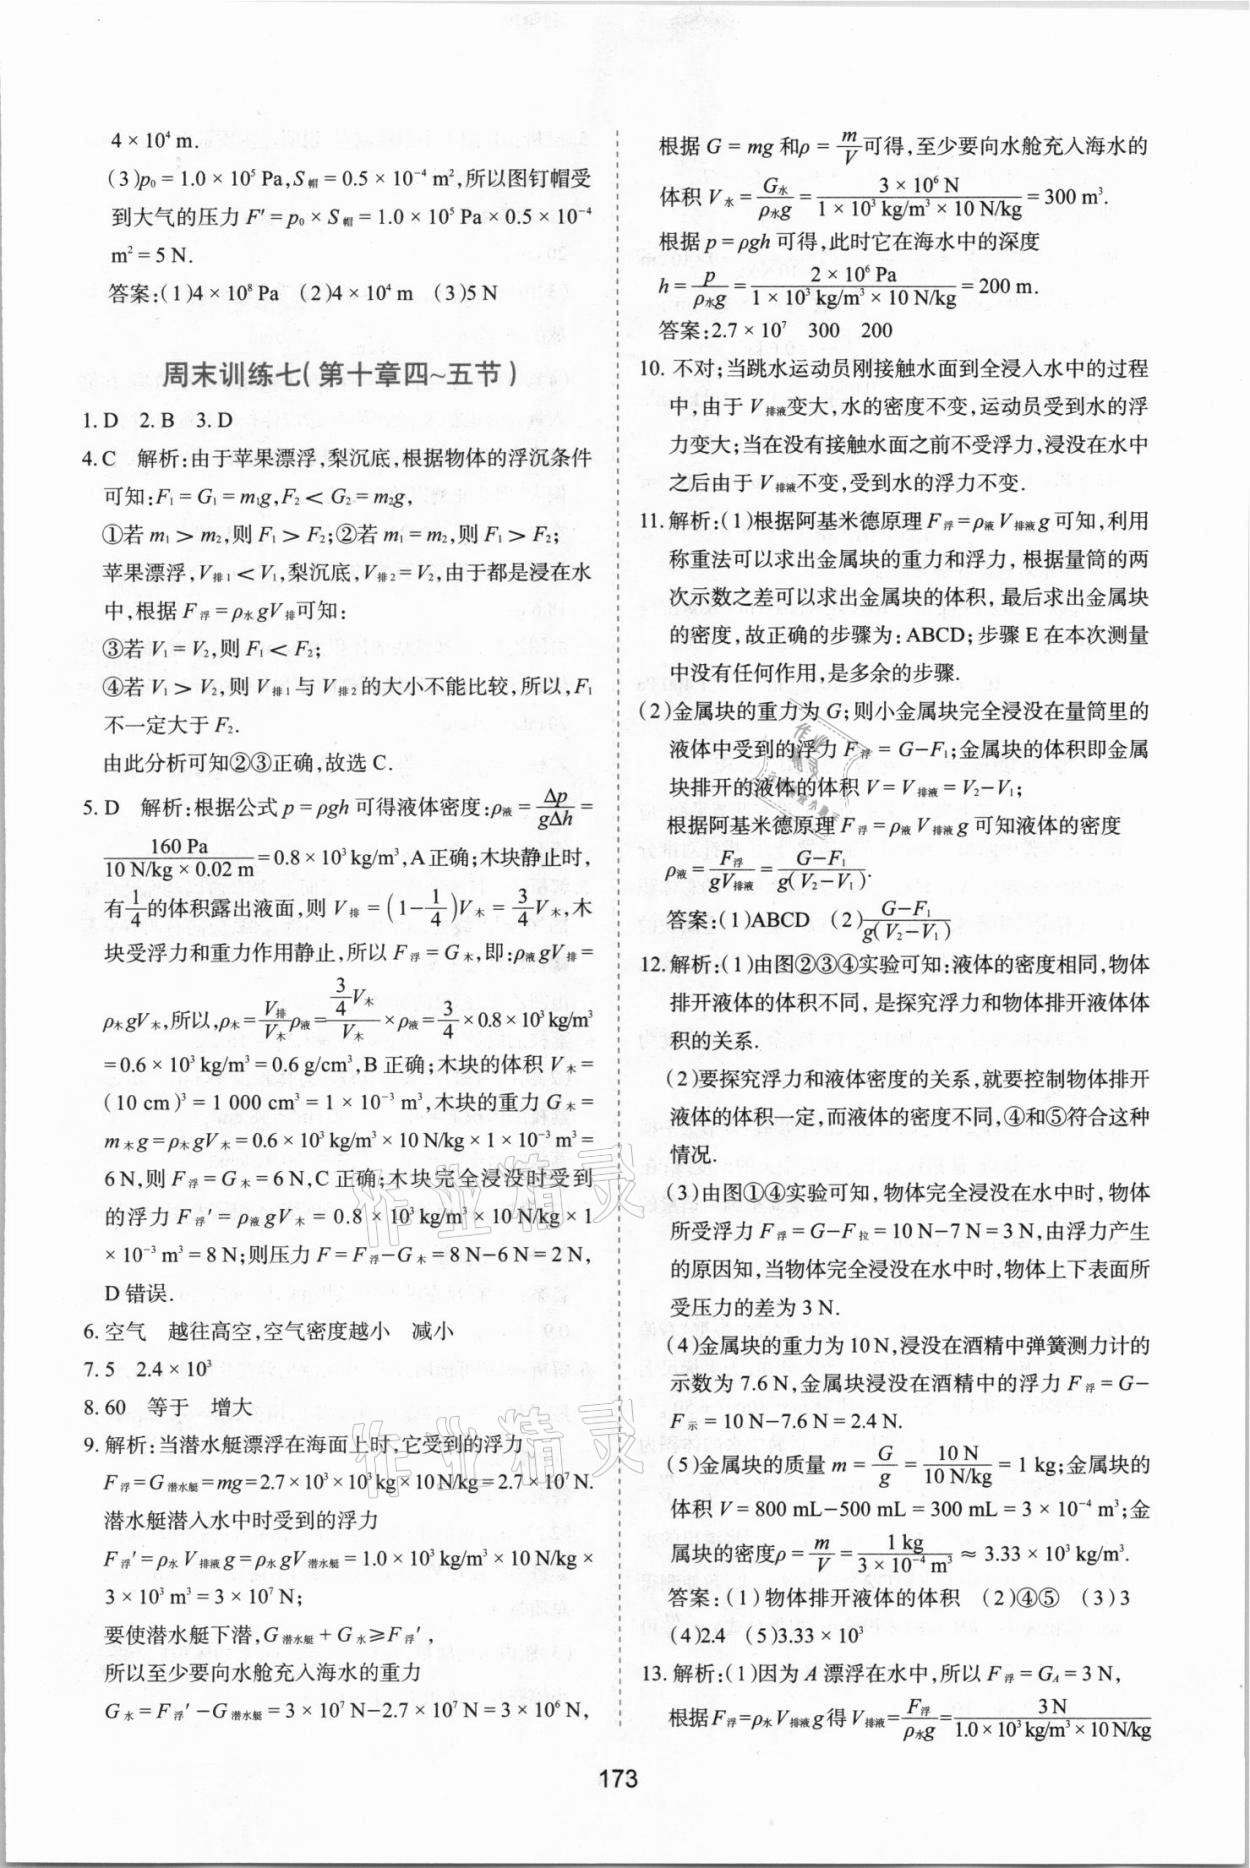 4 × 10⁴ m.
(3)p₀ = 1.0 × 10⁵ Pa,S帽 = 0.5 × 10⁻⁴ m²,所以图钉帽受
到大气的压力 F′ = p₀ × S帽 = 1.0 × 10⁵ Pa × 0.5 × 10⁻⁴
m² = 5 N.
答案:(1)4 × 10⁸ Pa (2)4 × 10⁴ m (3)5 N
周末训练七(第十章四~五节)
1. D 2. B 3. D
4. C 解析:由于苹果漂浮,梨沉底,根据物体的浮沉条件
可知:F₁ = G₁ = m₁g,F₂ < G₂ = m₂g,
①若 m₁ > m₂,则 F₁ > F₂;②若 m₁ = m₂,则 F₁ > F₂;
苹果漂浮,V排1 < V₁,梨沉底,V排2 = V₂,由于都是浸在水
中,根据 F浮 = ρ水gV排可知:
③若 V₁ = V₂,则 F₁ < F₂;
④若 V₁ > V₂,则 V排1 与 V排2 的大小不能比较,所以,F₁
不一定大于 F₂.
由此分析可知②③正确,故选 C.
5. D 解析:根据公式 p = ρgh 可得液体密度:ρ液 = Δp/(gΔh) =
160 Pa/(10 N/kg × 0.02 m) = 0.8 × 10³ kg/m³,A 正确;木块静止时,
有 1/4 的体积露出液面,则 V排 = (1 − 1/4)V木 = 3/4 V木,木
块受浮力和重力作用静止,所以 F浮 = G木,即:ρ液gV排 =
ρ木gV木,所以,ρ木 = V排/V木 ρ液 = (3/4 V木)/V木 × ρ液 = 3/4 × 0.8 × 10³ kg/m³
= 0.6 × 10³ kg/m³ = 0.6 g/cm³,B 正确;木块的体积 V木 =
(10 cm)³ = 1 000 cm³ = 1 × 10⁻³ m³,木块的重力 G木 =
m木g = ρ木gV木 = 0.6 × 10³ kg/m³ × 10 N/kg × 1 × 10⁻³ m³ =
6 N,则 F浮 = G木 = 6 N,C 正确;木块完全浸没时受到
的浮力 F浮′ = ρ液gV木 = 0.8 × 10³ kg/m³ × 10 N/kg × 1
× 10⁻³ m³ = 8 N;则压力 F = F浮 − G木 = 8 N − 6 N = 2 N,
D 错误.
6. 空气 越往高空,空气密度越小 减小
7. 5 2.4 × 10³
8. 60 等于 增大
9. 解析:当潜水艇漂浮在海面上时,它受到的浮力
F浮 = G潜水艇 = mg = 2.7 × 10³ × 10³ kg × 10 N/kg = 2.7 × 10⁷ N.
潜水艇潜入水中时受到的浮力
F浮′ = ρ水V排液g = ρ水gV潜水艇 = 1.0 × 10³ kg/m³ × 10 N/kg ×
3 × 10³ m³ = 3 × 10⁷ N;
要使潜水艇下潜,G潜水艇 + G水 ≥ F浮′,
所以至少要向水舱充入海水的重力
G水 = F浮′ − G潜水艇 = 3 × 10⁷ N − 2.7 × 10⁷ N = 3 × 10⁶ N,
根据 G = mg 和ρ = m/V 可得,至少要向水舱充入海水的
体积 V水 = G水/(ρ水g) = 3 × 10⁶ N/(1 × 10³ kg/m³ × 10 N/kg) = 300 m³.
根据 p = ρgh 可得,此时它在海水中的深度
h = p/(ρ水g) = 2 × 10⁶ Pa/(1 × 10³ kg/m³ × 10 N/kg) = 200 m.
答案:2.7 × 10⁷ 300 200
10. 不对;当跳水运动员刚接触水面到全浸入水中的过程
中,由于 V排液变大,水的密度不变,运动员受到水的浮
力变大;当在没有接触水面之前不受浮力,浸没在水中
之后由于 V排液不变,受到水的浮力不变.
11. 解析:(1)根据阿基米德原理 F浮 = ρ液V排液g 可知,利用
称重法可以求出金属块的重力和浮力,根据量筒的两
次示数之差可以求出金属块的体积,最后求出金属块
的密度,故正确的步骤为:ABCD;步骤 E 在本次测量
中没有任何作用,是多余的步骤.
(2)金属块的重力为 G;则小金属块完全浸没在量筒里的
液体中受到的浮力 F浮 = G − F₁;金属块的体积即金属
块排开的液体的体积 V = V排液 = V₂ − V₁;
根据阿基米德原理 F浮 = ρ液V排液g 可知液体的密度
ρ液 = F浮/(gV排液) = (G − F₁)/(g(V₂ − V₁)).
答案:(1)ABCD (2)(G − F₁)/(g(V₂ − V₁))
12. 解析:(1)由图②③④实验可知:液体的密度相同,物体
排开液体的体积不同,是探究浮力和物体排开液体体
积的关系.
(2)要探究浮力和液体密度的关系,就要控制物体排开
液体的体积一定,而液体的密度不同,④和⑤符合这种
情况.
(3)由图①④实验可知,物体完全浸没在水中时,物体
所受浮力 F浮 = G − F拉 = 10 N − 7 N = 3 N,由浮力产生
的原因知,当物体完全浸没在水中时,物体上下表面所
受压力的差为 3 N.
(4)金属块的重力为 10 N,浸没在酒精中弹簧测力计的
示数为 7.6 N,金属块浸没在酒精中的浮力 F浮 = G −
F示 = 10 N − 7.6 N = 2.4 N.
(5)金属块的质量 m = G/g = 10 N/(10 N/kg) = 1 kg;金属块的
体积 V = 800 mL − 500 mL = 300 mL = 3 × 10⁻⁴ m³;金
属块的密度ρ = m/V = 1 kg/(3 × 10⁻⁴ m³) ≈ 3.33 × 10³ kg/m³.
答案:(1)物体排开液体的体积 (2)④⑤ (3)3
(4)2.4 (5)3.33 × 10³
13. 解析:(1)因为 A 漂浮在水中,所以 F浮 = G_A = 3 N,
根据 F浮 = ρ水V排液g 得 V排液 = F浮/(ρ水g) = 3 N/(1.0 × 10³ kg/m³ × 10 N/kg)
173
作业精灵
作业精灵